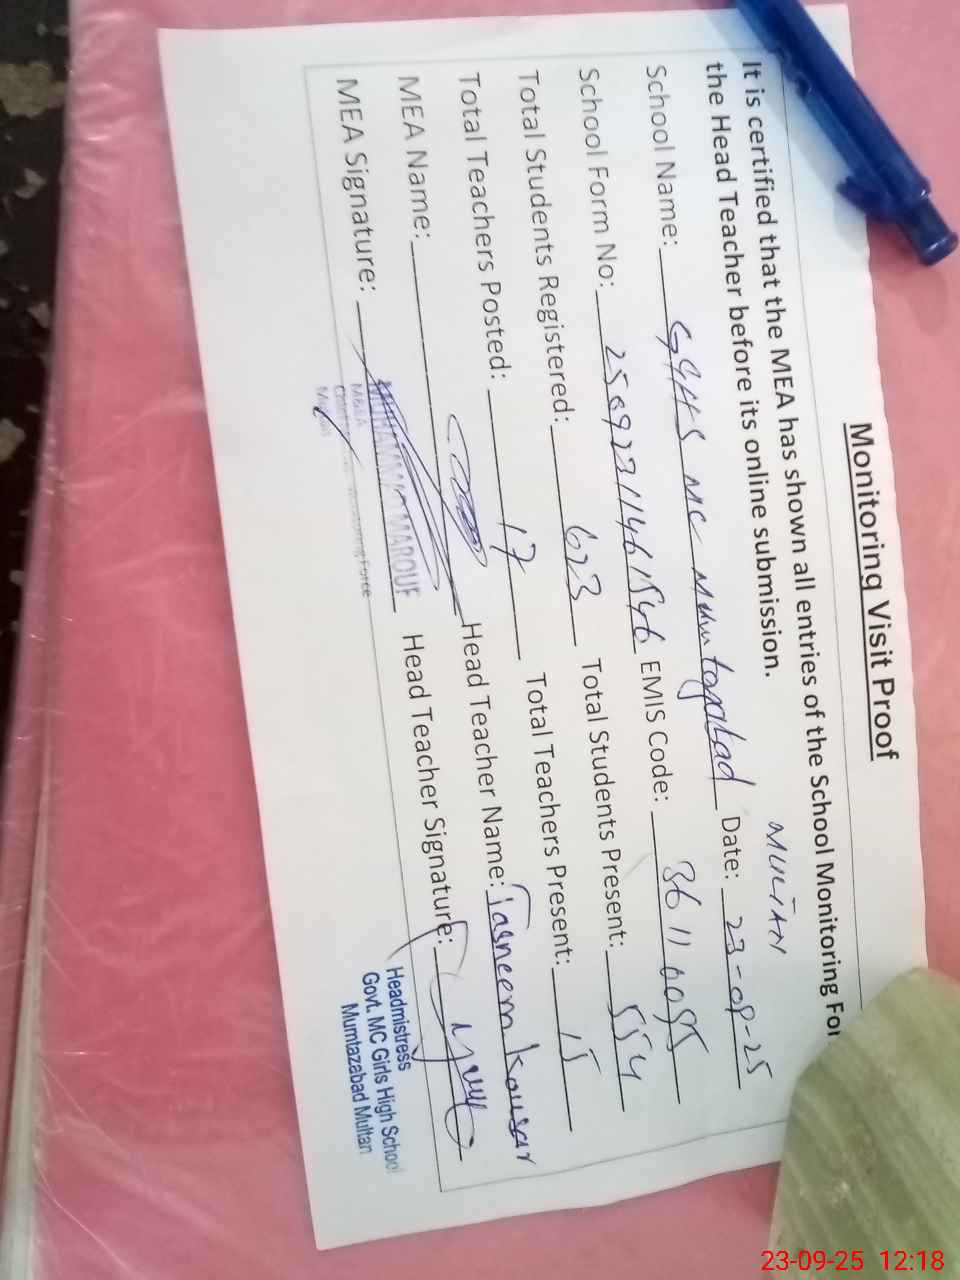 Monitoring Visit Proof
It is certified that the MEA has shown all entries of the School Monitoring For
the Head Teacher before its online submission.
MULTAN
School Name: GGHS MC Mumtazabad Date: 23-09-25
School Form No: 25092311461546 EMIS Code: 36110095
Total Students Registered: 623 Total Students Present: 554
Total Teachers Posted: 17 Total Teachers Present: 15
MEA Name: Head Teacher Name: Tasneem Kousar
MEA Signature: MUHAMMAD MAROUF Head Teacher Signature:
M&EA
Monitoring Force
Multan
Headmistress
Govt. MC Girls High School
Mumtazabad Multan
23-09-25 12:18